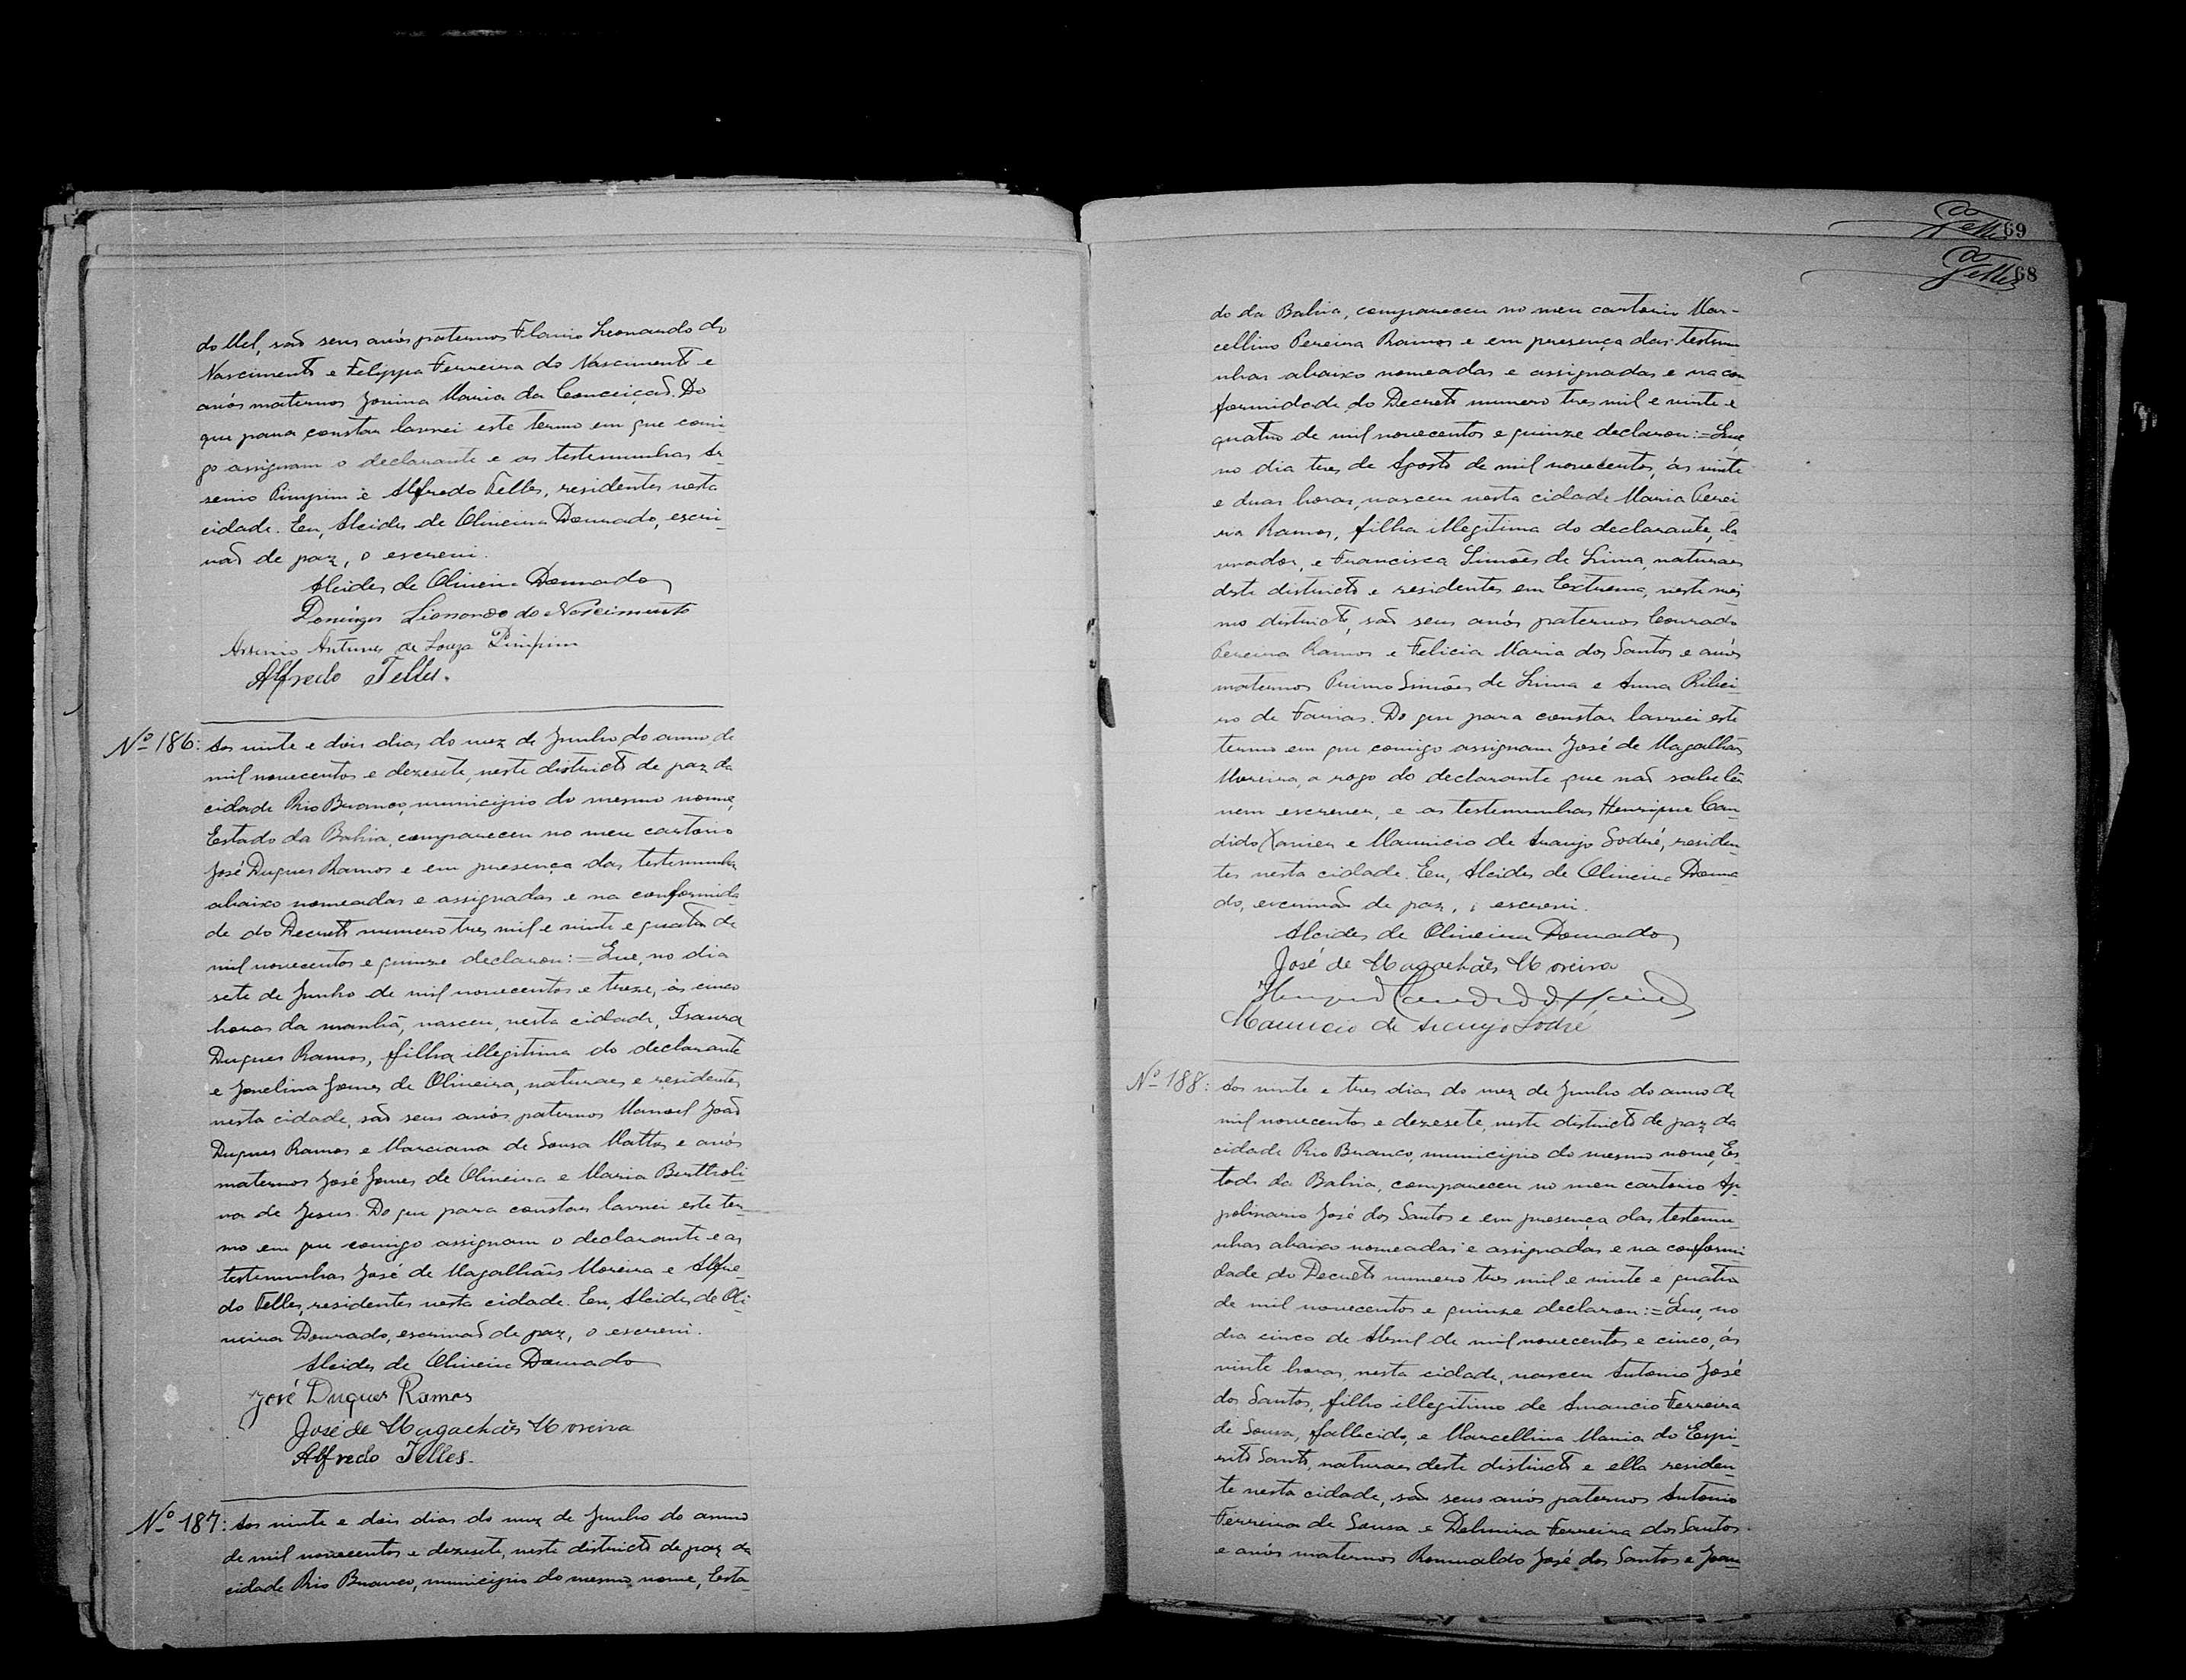 do Mel, são seus avós paternos Flavio Leonardo do
Nascimento e Felippa Ferreira do Nascimento e
avós maternos Jovina Maria da Conceição. Do
que para constar lavrei este termo em que comi-
go assignam o declarante e as testemunhas Ar
senio Pimpim e Alfredo Telles, residentes nesta
cidade. Eu, Alcides de Oliveira Dourado, escri-
vão de paz, o escrevi.
Alcides de Oliveira Dourado
Domingos Lionardo do Nascimento
Arsenio Antunes de Souza Pimpim
Alfredo Telles.
Nº 186: Aos vinte e dois dias do mez de Junho do anno de
mil novecentos e dezesete, neste districto de paz da
cidade Rio Branco, municipio do mesmo nome,
Estado da Bahia, compareceu no meu cartorio
José Duques Ramos e em presença das testemunhas
abaixo nomeadas e assignadas e na conformida
de do Decreto numero tres mil e vinte e quatro de
mil novecentos e quinze declarou:=Que, no dia
sete de Junho de mil novecentos e treze, ás cinco
horas da manhã, nasceu, nesta cidade, Isaura
Duques Ramos, filha illegitima do declarante
e Jovelina Gomes de Oliveira, naturaes e residentes
nesta cidade, são seus avós paternos Manoel João
Duques Ramos e Marciana de Sousa Mattos e avós
maternos José Gomes de Oliveira e Maria Bertholi
na de Jesus. Do que para constar lavrei este ter-
mo em que comigo assignam o declarante e as
testemunhas José de Magalhães Moreira e Alfre-
do Telles, residentes nesta cidade. Eu, Alcides de Oli-
veira Dourado, escrivão de paz, o escrevi.
Alcides de Oliveira Dourado
José Duques Ramos
José de Magalhães Moreira
Alfredo Telles.
Nº 187: Aos vinte e dois dias do mez de Junho do anno
de mil novecentos e dezesete, neste districto de paz da
cidade Rio Branco, municipio do mesmo nome, Esta-
Telles 69
Telles 68
do da Bahia, compareceu no meu cartorio Mar-
cellino Pereira Ramos e em presença das testemu
nhas abaixo nomeadas e assignadas e na con
formidade do Decreto numero tres mil e vinte e
quatro de mil novecentos e quinze declarou:=Que,
no dia tres de Agosto de mil novecentos, ás vinte
e duas horas, nasceu nesta cidade Maria Perei
ra Ramos, filha illegitima do declarante, la
vrador, e Francisca Simões de Lima, naturaes
deste districto e residentes em Extrema, neste mes
mo districto, são seus avós paternos Conrado
Pereira Ramos e Felicia Maria dos Santos e avós
maternos Primo Simões de Lima e Anna Ribei
ro de Farias. Do que para constar lavrei este
termo em que comigo assignam José de Magalhães
Moreira, a rogo do declarante que não sabe lêr
nem escrever, e as testemunhas Henrique Can
dido Xavier e Mauricio de Araujo Sodré, residen
tes nesta cidade. Eu, Alcides de Oliveira Doura
do, escrivão de paz, o escrevi.
Alcides de Oliveira Dourado
José de Magalhães Moreira
Henrique Candido Xavier
Mauricio de Araujo Sodré
Nº 188: Aos vinte e tres dias do mez de Junho do anno de
mil novecentos e dezesete, neste districto de paz da
cidade Rio Branco, municipio do mesmo nome, Es-
tado da Bahia, compareceu no meu cartorio Ap
polinario José dos Santos e em presença das testemu-
nhas abaixo nomeadas e assignadas e na conformi
dade do Decreto numero tres mil e vinte e quatro
de mil novecentos e quinze declarou:=Que, no
dia cinco de Abril de mil novecentos e cinco, ás
vinte horas, nesta cidade, nasceu Antonio José
dos Santos, filho illegitimo de Amancio Ferreira
de Sousa, fallecido, e Marcellina Maria do Espi-
rito Santo, naturaes deste districto e ella residen-
te nesta cidade, são seus avós paternos Antonio
Ferreira de Sousa e Delmira Ferreira dos Santos
e avós maternos Romualdo José dos Santos e Joan